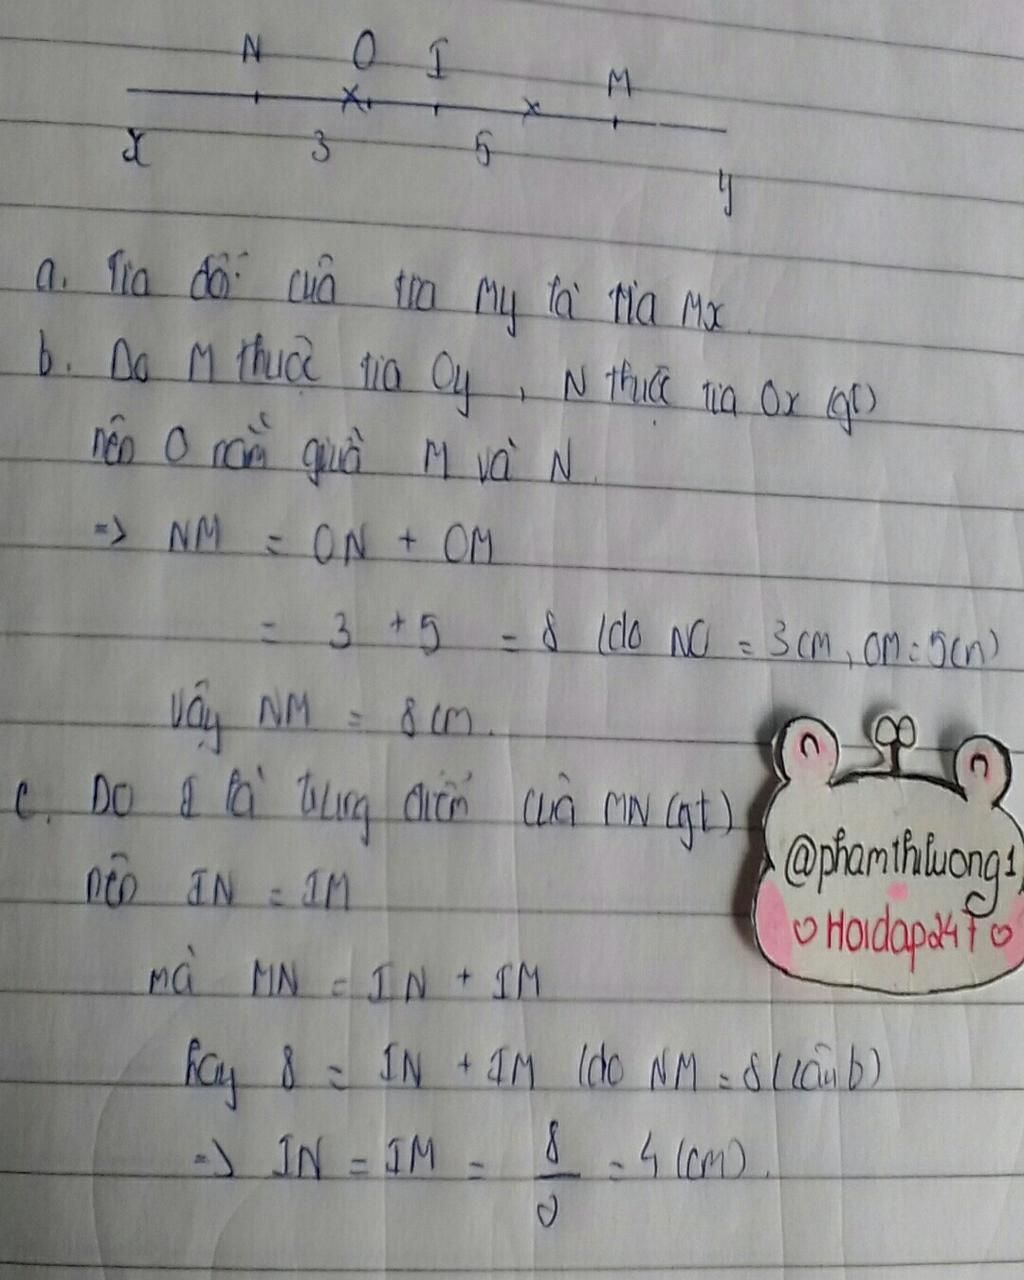 N O I M
x 3 5 y
a. Tia đối của tia My là tia Mx
b. Do M thuộc tia Oy, N thuộc tia Ox (gt)
nên O nằm giữa M và N.
=> NM = ON + OM
= 3 + 5 = 8 (do NO = 3cm, OM = 5cm)
Vậy NM = 8cm.
c. Do I là trung điểm của MN (gt)
nên IN = IM
@phamthiluong1
♡ Hoidap247 ♡
mà MN = IN + IM
hay 8 = IN + IM (do NM = 8 (câu b)
=> IN = IM = 8/2 = 4 (cm).